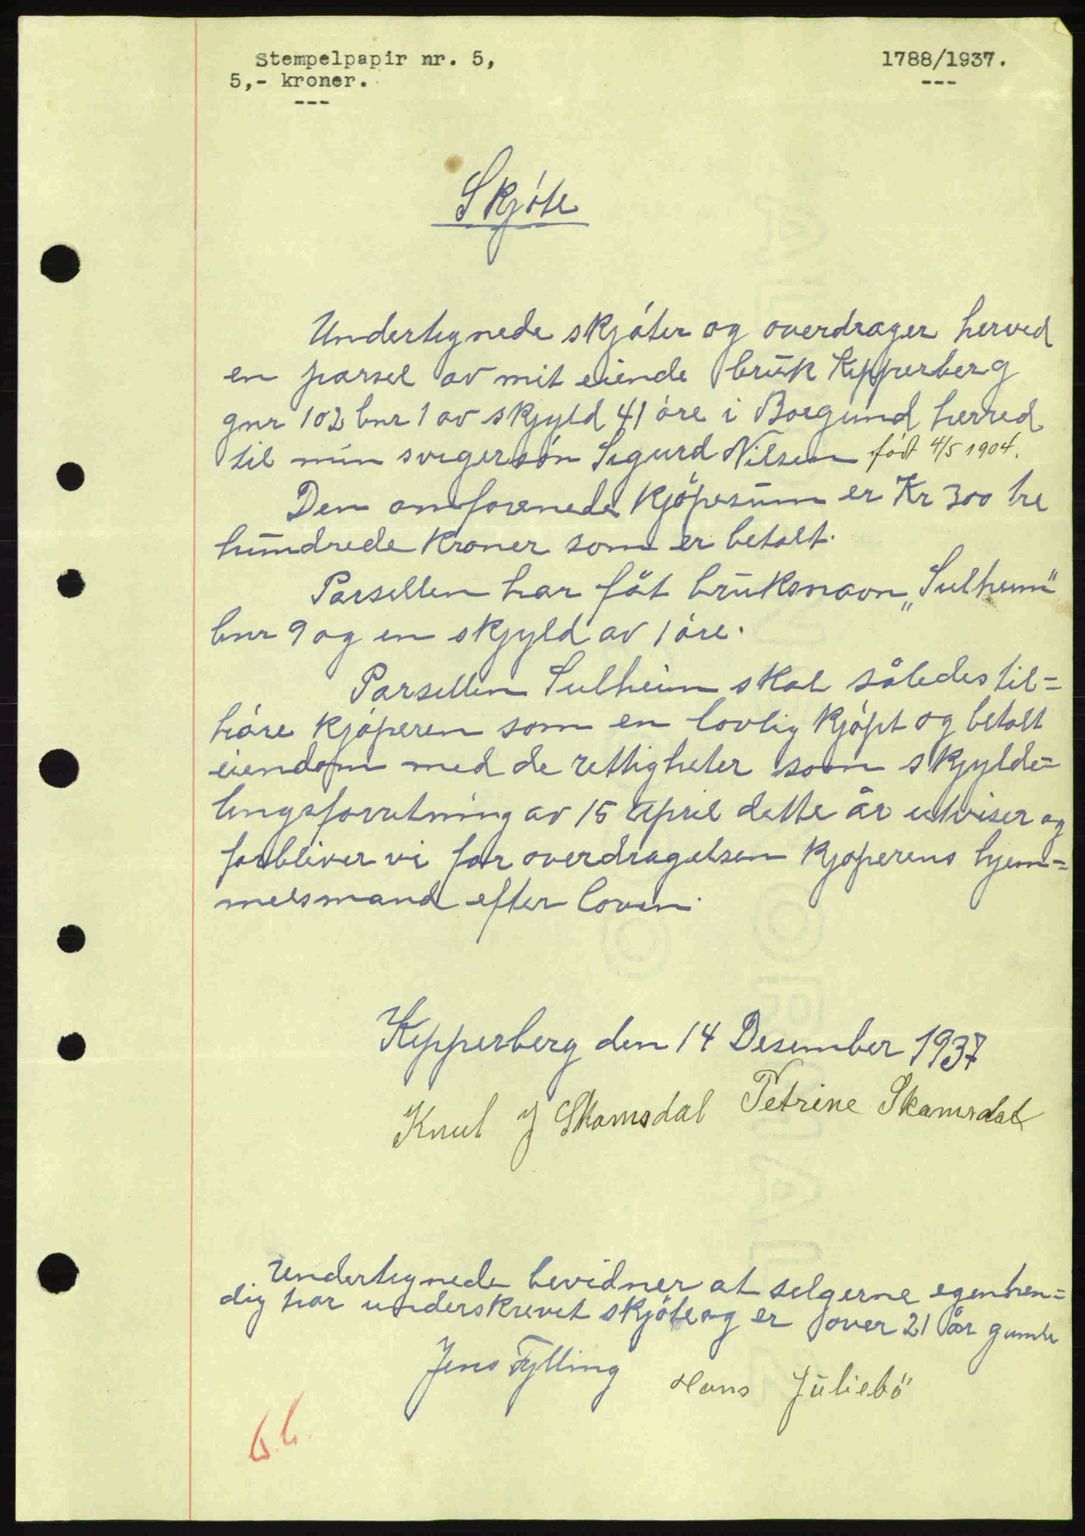 Stempelpapir nr. 5,
5,- kroner.
---
1788/1937.
---
Skjöte
Undertegnede skjöter og overdrager herved
en parsel av mit eiende bruk Kipperberg
gnr 102 bnr 1 av skjyld 41 öre i Borgund herred
til min svigersön Sigurd Nilsen född 4/5 1904.
Den omforenede kjöpesum er Kr 300 tre
hundrede kroner som er betalt.
Parsellen har fåt bruksnavn „Sulheim"
bnr 9 og en skjyld av 1 öre.
Parsellen Sulheim skal således til=
höre kjöperen som en lovlig kjöpt og betalt
eiendom med de rettigheter som skjylde=
lingsforretning av 15 april dette år utviser og
forbliver vi for overdragelsen kjöperens hjem=
melsmand efter loven.
Kipperberg den 14 Desember 1937
Knut J Skamsdal Petrine Skamsdal
Undertegnede bevidner at selgerne egenhen=
dig har underskrevet skjöte og er over 21 år gamle
Jens Fylling Hans Juliebö